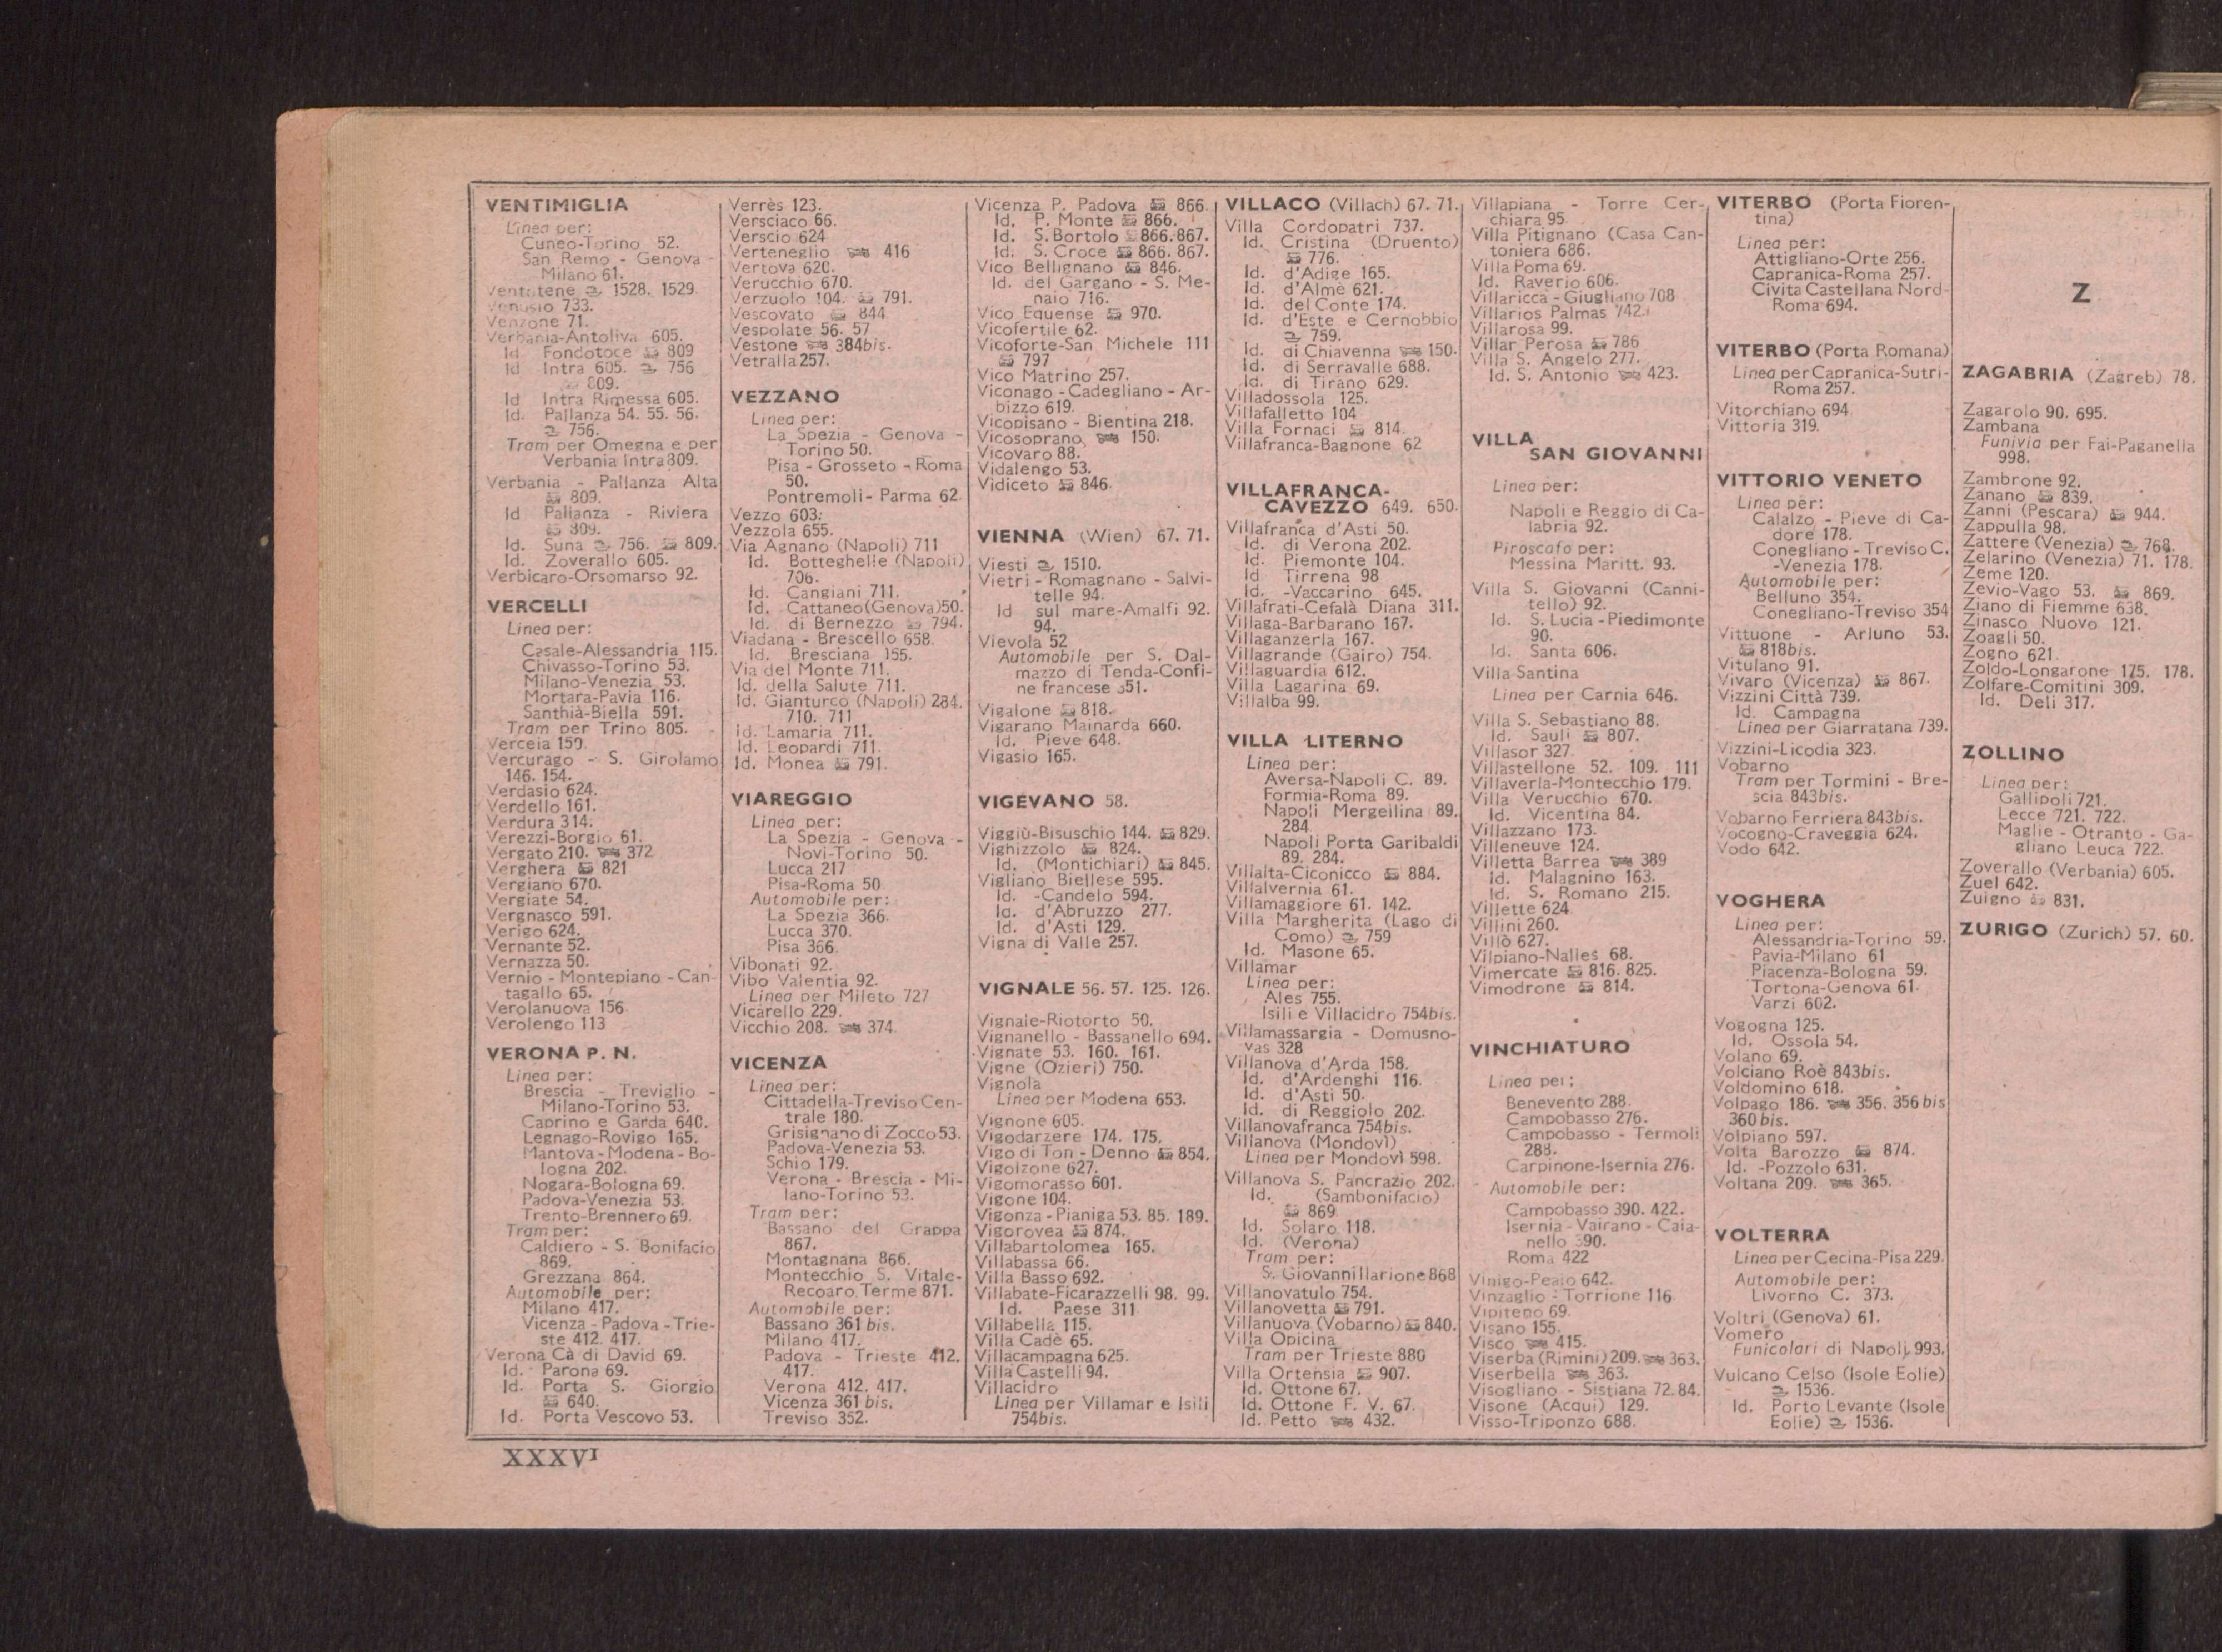 VENTIMIGLIA
Linea per:
Cuneo-Torino 52.
San Remo - Genova -
Milano 61.
Ventotene 1528. 1529.
Venusio 733.
Venzone 71.
Verbania-Antoliva 605.
Id Fondotoce 809
Id Intra 605. 756
809.
Id Intra Rimessa 605.
Id. Pallanza 54. 55. 56.
756.
Tram per Omegna e per
Verbania Intra 809.
Verbania - Pallanza Alta
809.
Id Pallanza - Riviera
809.
Id. Suna 756. 809.
Id. Zoverallo 605.
Verbicaro-Orsomarso 92.
VERCELLI
Linea per:
Casale-Alessandria 115.
Chivasso-Torino 53.
Milano-Venezia 53.
Mortara-Pavia 116.
Santhià-Biella 591.
Tram per Trino 805.
Verceia 150.
Vercurago - S. Girolamo
146. 154.
Verdasio 624.
Verdello 161.
Verdura 314.
Verezzi-Borgio 61.
Vergato 210. 372
Verghera 821
Vergiano 670.
Vergiate 54.
Vergnasco 591.
Verigo 624.
Vernante 52.
Vernazza 50.
Vernio - Montepiano - Can-
tagallo 65.
Verolanuova 156
Verolengo 113
VERONA P. N.
Linea per:
Brescia - Treviglio -
Milano-Torino 53.
Caprino e Garda 640.
Legnago-Rovigo 165.
Mantova - Modena - Bo-
logna 202.
Nogara-Bologna 69.
Padova-Venezia 53.
Trento-Brennero 69.
Tram per:
Caldiero - S. Bonifacio
869.
Grezzana 864.
Automobile per:
Milano 417.
Vicenza - Padova - Trie-
ste 412. 417.
Verona Cà di David 69.
Id. Parona 69.
Id. Porta S. Giorgio
640.
Id. Porta Vescovo 53.
Verrès 123.
Versciaco 66.
Verscio 624
Verteneglio 416
Vertova 620.
Verucchio 670.
Verzuolo 104. 791.
Vescovato 844
Vespolate 56. 57
Vestone 384bis.
Vetralla 257.
VEZZANO
Linea per:
La Spezia - Genova -
Torino 50.
Pisa - Grosseto - Roma
50.
Pontremoli - Parma 62.
Vezzo 603.
Vezzola 655.
Via Agnano (Napoli) 711
Id. Botteghelle (Napoli)
706.
Id. Cangiani 711.
Id. Cattaneo (Genova) 50.
Id. di Bernezzo 794.
Viadana - Brescello 658.
Id. Bresciana 155.
Via del Monte 711.
Id. della Salute 711.
Id. Gianturco (Napoli) 284.
710. 711
Id. Lamaria 711.
Id. Leopardi 711.
Id. Monea 791.
VIAREGGIO
Linea per:
La Spezia - Genova -
Novi-Torino 50.
Lucca 217
Pisa-Roma 50
Automobile per:
La Spezia 366.
Lucca 370.
Pisa 366.
Vibonati 92.
Vibo Valentia 92.
Linea per Mileto 727
Vicarello 229.
Vicchio 208. 374.
VICENZA
Linea per:
Cittadella-Treviso Cen-
trale 180.
Grisignano di Zocco 53.
Padova-Venezia 53.
Schio 179.
Verona - Brescia - Mi-
lano-Torino 53.
Tram per:
Bassano del Grappa
867.
Montagnana 866.
Montecchio S. Vitale-
Recoaro Terme 871.
Automobile per:
Bassano 361 bis.
Milano 417.
Padova - Trieste 412.
417.
Verona 412. 417.
Vicenza 361 bis.
Treviso 352.
Vicenza P. Padova 866.
Id. P. Monte 866.
Id. S. Bortolo 866. 867.
Id. S. Croce 866. 867.
Vico Bellignano 846.
Id. del Gargano - S. Me-
naio 716.
Vico Equense 970.
Vicofertile 62.
Vicoforte-San Michele 111
797
Vico Matrino 257.
Viconago - Cadegliano - Ar-
bizzo 619.
Vicopisano - Bientina 218.
Vicosoprano 150.
Vicovaro 88.
Vidalengo 53.
Vidiceto 846.
VIENNA (Wien) 67. 71.
Viesti 1510.
Vietri - Romagnano - Salvi-
telle 94.
Id sul mare-Amalfi 92.
94.
Vievola 52
Automobile per S. Dal-
mazzo di Tenda-Confi-
ne francese 351.
Vigalone 818.
Vigarano Mainarda 660.
Id. Pieve 648.
Vigasio 165.
VIGEVANO 58.
Viggiù-Bisuschio 144. 829.
Vighizzolo 824.
Id. (Montichiari) 845.
Vigliano Biellese 595.
Id. -Candelo 594.
Id. d'Abruzzo 277.
Id. d'Asti 129.
Vigna di Valle 257.
VIGNALE 56. 57. 125. 126.
Vignale-Riotorto 50.
Vignanello - Bassanello 694.
Vignate 53. 160. 161.
Vigne (Ozieri) 750.
Vignola
Linea per Modena 653.
Vignone 605.
Vigodarzere 174. 175.
Vigo di Ton - Denno 854.
Vigolzone 627.
Vigomorasso 601.
Vigone 104.
Vigonza - Pianiga 53. 85. 189.
Vigorovea 874.
Villabartolomea 165.
Villabassa 66.
Villa Basso 692.
Villabate-Ficarazzelli 98. 99.
Id. Paese 311
Villabella 115.
Villa Cadè 65.
Villacampagna 625.
Villa Castelli 94.
Villacidro
Linea per Villamar e Isili
754bis.
VILLACO (Villach) 67. 71.
Villa Cordopatri 737.
Id. Cristina (Druento)
776.
Id. d'Adige 165.
Id. d'Almè 621.
Id. del Conte 174.
Id. d'Este e Cernobbio
759.
Id. di Chiavenna 150.
Id. di Serravalle 688.
Id. di Tirano 629.
Villadossola 125.
Villafalletto 104
Villa Fornaci 814.
Villafranca-Bagnone 62
VILLAFRANCA-
CAVEZZO 649. 650.
Villafranca d'Asti 50.
Id. di Verona 202.
Id. Piemonte 104.
Id Tirrena 98
Id. -Vaccarino 645.
Villafrati-Cefalà Diana 311.
Villaga-Barbarano 167.
Villaganzerla 167.
Villagrande (Gairo) 754.
Villaguardia 612.
Villa Lagarina 69.
Villalba 99.
VILLA LITERNO
Linea per:
Aversa-Napoli C. 89.
Formia-Roma 89.
Napoli Mergellina 89.
284
Napoli Porta Garibaldi
89. 284.
Villalta-Ciconicco 884.
Villalvernia 61.
Villamaggiore 61. 142.
Villa Margherita (Lago di
Como) 759
Id. Masone 65.
Villamar
Linea per:
Ales 755.
Isili e Villacidro 754bis.
Villamassargia - Domusno-
vas 328
Villanova d'Arda 158.
Id. d'Ardenghi 116.
Id. d'Asti 50.
Id. di Reggiolo 202.
Villanovafranca 754bis.
Villanova (Mondovì)
Linea per Mondovì 598.
Villanova S. Pancrazio 202.
Id. (Sambonifacio)
869
Id. Solaro 118.
Id. (Verona)
Tram per:
S. Giovanni Ilarione 868
Villanovatulo 754.
Villanovetta 791.
Villanuova (Vobarno) 840.
Villa Opicina
Tram per Trieste 880
Villa Ortensia 907.
Id. Ottone 67.
Id. Ottone F. V. 67.
Id. Petto 432.
Villapiana - Torre Cer-
chiara 95.
Villa Pitignano (Casa Can-
toniera 686.
Villa Poma 69.
Id. Raverio 606.
Villaricca - Giugliano 708
Villarios Palmas 742.
Villarosa 99.
Villar Perosa 786
Villa S. Angelo 277.
Id. S. Antonio 423.
VILLA
SAN GIOVANNI
Linea per:
Napoli e Reggio di Ca-
labria 92.
Piroscafo per:
Messina Maritt. 93.
Villa S. Giovanni (Canni-
tello) 92.
Id. S. Lucia - Piedimonte
90.
Id. Santa 606.
Villa Santina
Linea per Carnia 646.
Villa S. Sebastiano 88.
Id. Sauli 807.
Villasor 327.
Villastellone 52. 109. 111
Villaverla-Montecchio 179.
Villa Verucchio 670.
Id. Vicentina 84.
Villazzano 173.
Villeneuve 124.
Villetta Barrea 389
Id. Malagnino 163.
Id. S. Romano 215.
Villette 624
Villini 260.
Villò 627.
Vilpiano-Nalles 68.
Vimercate 816. 825.
Vimodrone 814.
VINCHIATURO
Linea per:
Benevento 288.
Campobasso 276.
Campobasso - Termoli
288.
Carpinone-Isernia 276.
Automobile per:
Campobasso 390. 422.
Isernia - Vairano - Caia-
nello 390.
Roma 422
Vinigo-Peaio 642.
Vinzaglio - Torrione 116
Vipiteno 69.
Visano 155.
Visco 415.
Viserba (Rimini) 209. 363.
Viserbella 363.
Visogliano - Sistiana 72. 84.
Visone (Acqui) 129.
Visso-Triponzo 688.
VITERBO (Porta Fioren-
tina)
Linea per:
Attigliano-Orte 256.
Capranica-Roma 257.
Civita Castellana Nord-
Roma 694.
VITERBO (Porta Romana)
Linea per Capranica-Sutri-
Roma 257.
Vitorchiano 694
Vittoria 319.
VITTORIO VENETO
Linea per:
Calalzo - Pieve di Ca-
dore 178.
Conegliano - Treviso C.
-Venezia 178.
Automobile per:
Belluno 354.
Conegliano-Treviso 354
Vittuone - Arluno 53.
818bis.
Vitulano 91.
Vivaro (Vicenza) 867.
Vizzini Città 739.
Id. Campagna
Linea per Giarratana 739.
Vizzini-Licodia 323.
Vobarno
Tram per Tormini - Bre-
scia 843bis.
Vobarno Ferriera 843bis.
Vocogno-Craveggia 624.
Vodo 642.
VOGHERA
Linea per:
Alessandria-Torino 59.
Pavia-Milano 61
Piacenza-Bologna 59.
Tortona-Genova 61.
Varzi 602.
Vogogna 125.
Id. Ossola 54.
Volano 69.
Volciano Roè 843bis.
Voldomino 618.
Volpago 186. 356. 356 bis
360 bis.
Volpiano 597.
Volta Barozzo 874.
Id. -Pozzolo 631.
Voltana 209. 365.
VOLTERRA
Linea per Cecina-Pisa 229.
Automobile per:
Livorno C. 373.
Voltri (Genova) 61.
Vomero
Funicolari di Napoli 993.
Vulcano Celso (Isole Eolie)
1536.
Id. Porto Levante (Isole
Eolie) 1536.
Z
ZAGABRIA (Zagreb) 78.
Zagarolo 90. 695.
Zambana
Funivia per Fai-Paganella
998.
Zambrone 92.
Zanano 839.
Zanni (Pescara) 944.
Zappulla 98.
Zattere (Venezia) 768.
Zelarino (Venezia) 71. 178.
Zeme 120.
Zevio-Vago 53. 869.
Ziano di Fiemme 638.
Zinasco Nuovo 121.
Zoagli 50.
Zogno 621
Zoldo-Longarone 175. 178.
Zolfare-Comitini 309.
Id. Deli 317.
ZOLLINO
Linea per:
Gallipoli 721.
Lecce 721. 722.
Maglie - Otranto - Ga-
gliano Leuca 722.
Zoverallo (Verbania) 605.
Zuel 642.
Zuigno 831.
ZURIGO (Zurich) 57. 60.
XXXVI